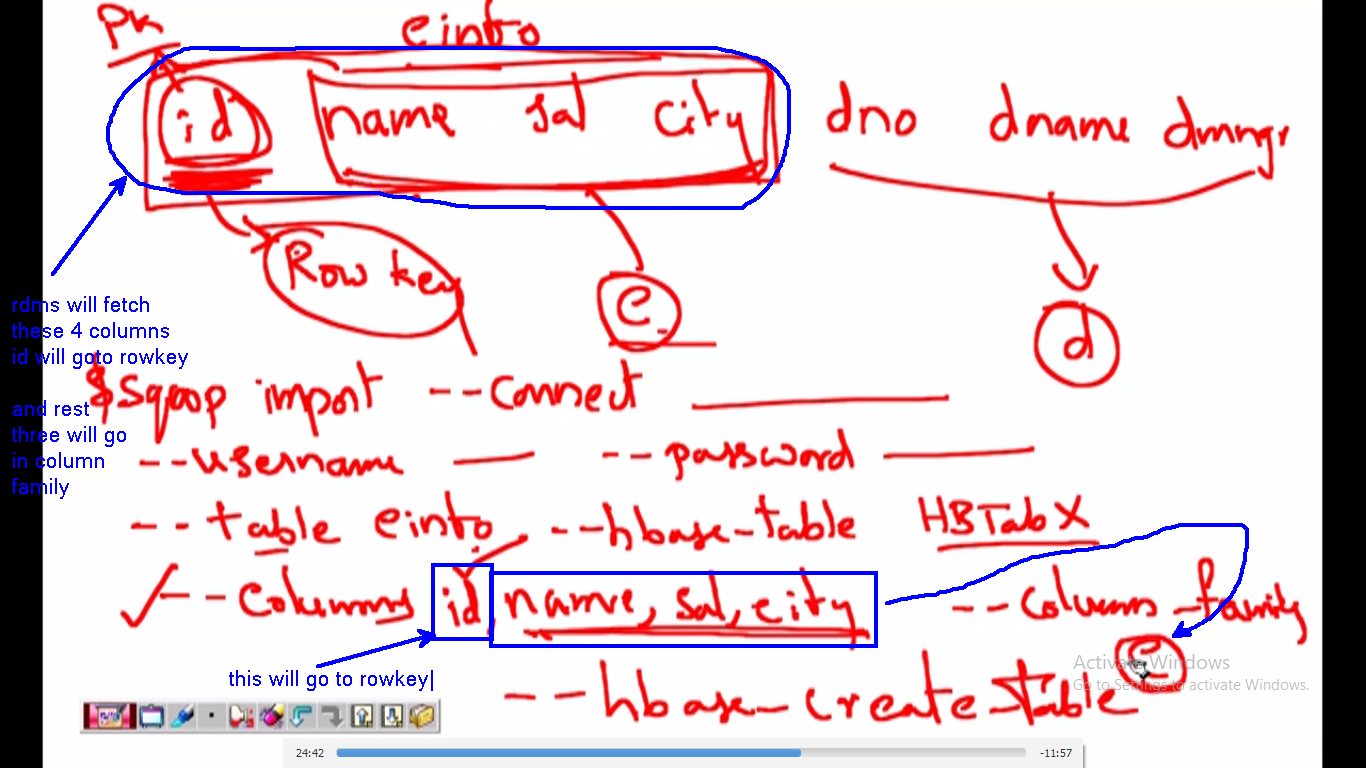 PK
einfo
id name sal city dno dname dmngr
Row key
e
d
rdms will fetch
these 4 columns
id will goto rowkey
and rest
three will go
in column
family
$ Sqoop import --connect
--username --password
--table einfo --hbase-table HBTabX
--columns id, name, sal, city --column-family
e
this will go to rowkey
--hbase-create-table
Activate Windows
Go to Settings to activate Windows.
24:42 -11:57